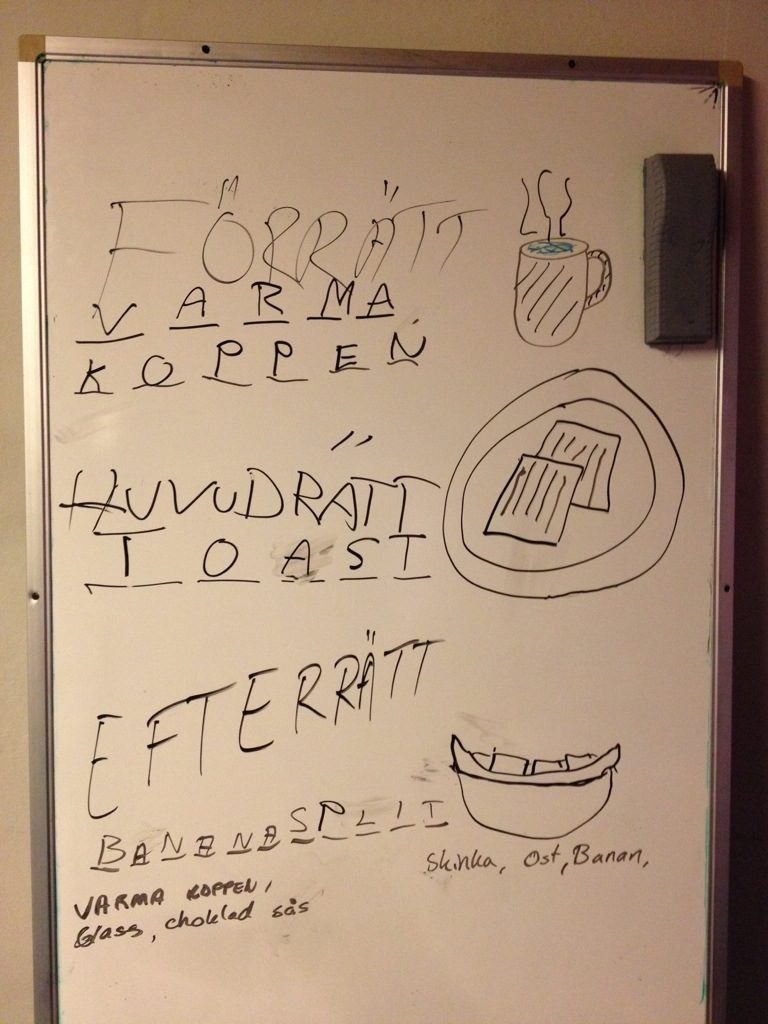 FÖRRÄTT
VARMA
KOPPEN
HUVUDRÄTT
TOAST
EFTERRÄTT
BANANASPLIT
Skinka, Ost, Banan,
VARMA KOPPEN,
Glass, choklad sås